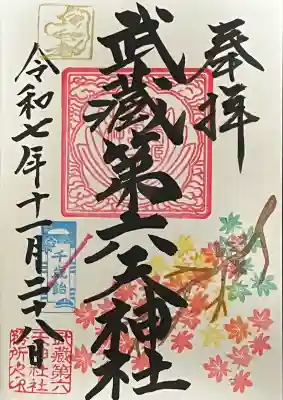 奉拝
武蔵第六天神社
令和七年十一月二十八日
千歳飴
武蔵第六
天神社